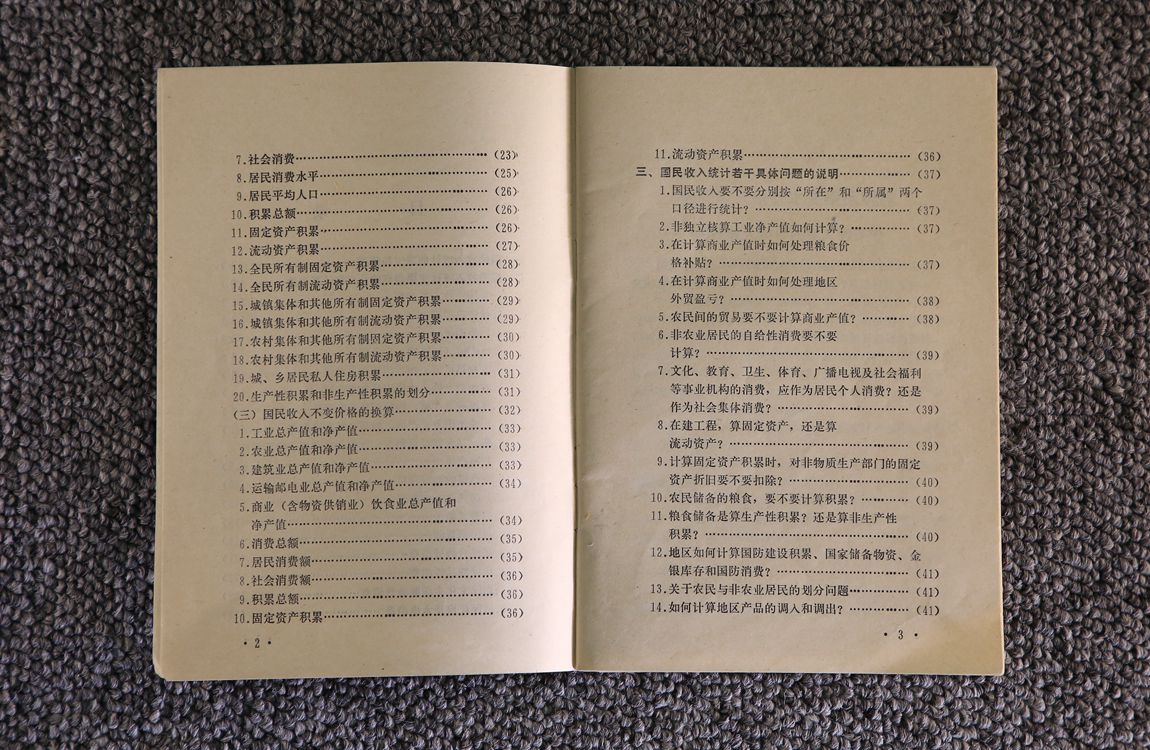 7.社会消费……………………………………(23)
8.居民消费水平………………………………(25)
9.居民平均人口………………………………(26)
10.积累总额……………………………………(26)
11.固定资产积累………………………………(26)
12.流动资产积累………………………………(27)
13.全民所有制固定资产积累…………………(28)
14.全民所有制流动资产积累…………………(28)
15.城镇集体和其他所有制固定资产积累………(29)
16.城镇集体和其他所有制流动资产积累………(29)
17.农村集体和其他所有制固定资产积累………(30)
18.农村集体和其他所有制流动资产积累………(30)
19.城、乡居民私人住房积累…………………(31)
20.生产性积累和非生产性积累的划分…………(31)
(三)国民收入不变价格的换算…………………(32)
1.工业总产值和净产值…………………………(33)
2.农业总产值和净产值…………………………(33)
3.建筑业总产值和净产值………………………(33)
4.运输邮电业总产值和净产值…………………(34)
5.商业(含物资供销业)饮食业总产值和
净产值……………………………………(34)
6.消费总额……………………………………(35)
7.居民消费额…………………………………(35)
8.社会消费额…………………………………(36)
9.积累总额……………………………………(36)
10.固定资产积累………………………………(36)
·2·
11.流动资产积累………………………………(36)
三、国民收入统计若干具体问题的说明…………(37)
1.国民收入要不要分别按“所在”和“所属”两个
口径进行统计?………………………………(37)
2.非独立核算工业净产值如何计算?…………(37)
3.在计算商业产值时如何处理粮食价
格补贴?……………………………………(37)
4.在计算商业产值时如何处理地区
外贸盈亏?…………………………………(38)
5.农民间的贸易要不要计算商业产值?………(38)
6.非农业居民的自给性消费要不要
计算?………………………………………(39)
7.文化、教育、卫生、体育、广播电视及社会福利
等事业机构的消费,应作为居民个人消费?还是
作为社会集体消费?…………………………(39)
8.在建工程,算固定资产,还是算
流动资产?…………………………………(39)
9.计算固定资产积累时,对非物质生产部门的固定
资产折旧要不要扣除?………………………(40)
10.农民储备的粮食,要不要计算积累?………(40)
11.粮食储备是算生产性积累?还是算非生产性
积累?………………………………………(40)
12.地区如何计算国防建设积累、国家储备物资、金
银库存和国防消费?…………………………(41)
13.关于农民与非农业居民的划分问题…………(41)
14.如何计算地区产品的调入和调出?…………(41)
·3·